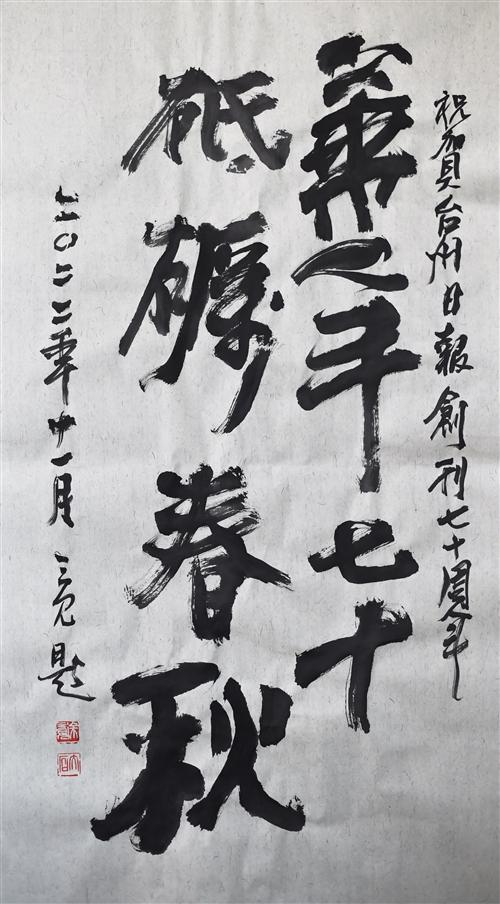 祝賀台州日報創刊七十周年
華年七十
砥礪春秋
二〇二二年十一月 題